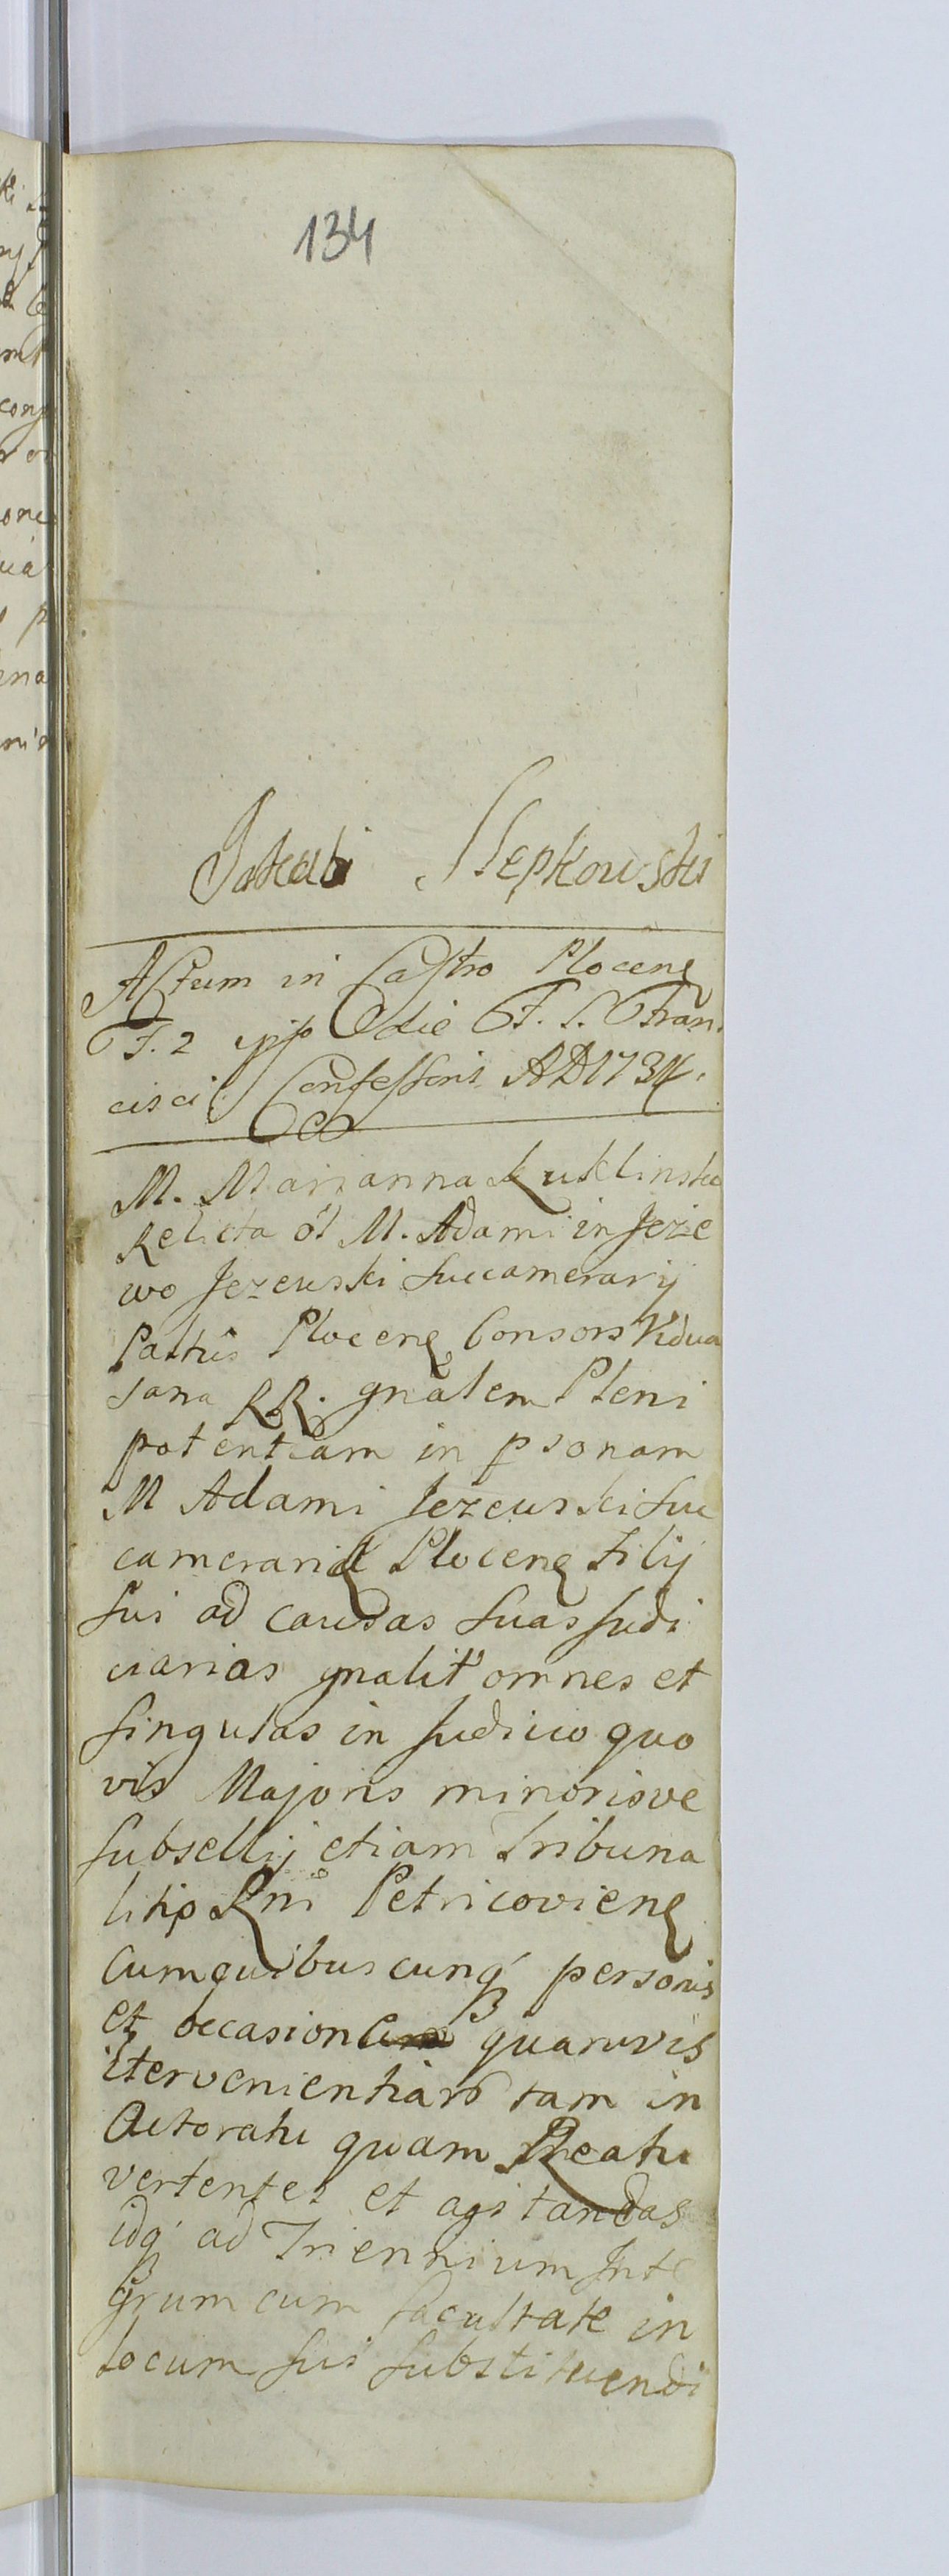 134
Jakub Slepkowski
Actum in Castro Plocen
F. 2 ipso die F. S. Fran
cisci Confessoris AD 1734.
M. Marianna Kuklinska
Relicta ol M. Adami in Jeże
wo Jezewski Succamerarij
Paltus Plocen Consors Vidua
sana RR. gnalem Pleni
potentiam in psonam
M Adami Jezewski Suc
camerarid Plocen Filij
Sui ad causas suas Judi
ciarias gnalit omnes et
singulas in Judicio quo
vis Majoris minorisve
Subsellij etiam Tribuna
litip Rni Petricovien
Cumquibuscunq personis
et occasione quaruvis
itervenientiaro tam in
Actoratu quam Reatu
vertentes et agitandas
idq ad Triennium Inte
grum cum facultate in
locum sui substituendi